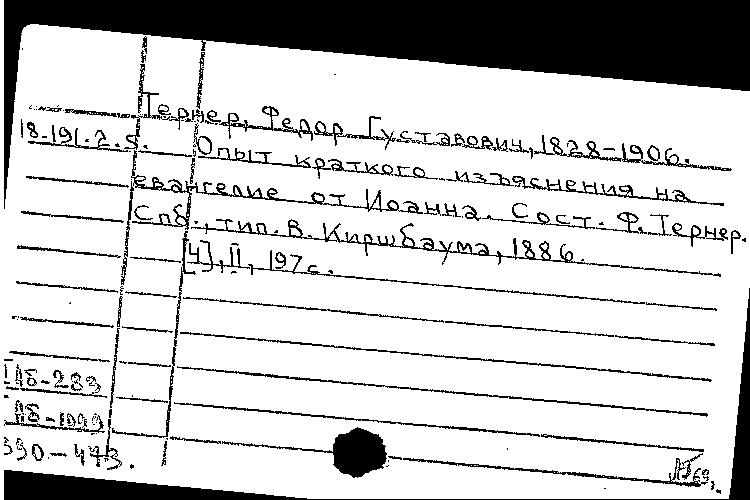 Тернер, Федор Густавович, 1828-1906.
18.191.2.5. Опыт краткого изъяснения на
евангелие от Иоанна. Сост. Ф. Тернер.
Спб., тип. В. Киршбаума, 1886.
[4], II, 197с.
Аб-283
Аб-1099
390-473.